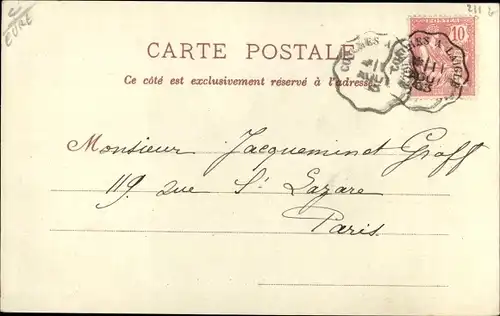 EURE
211
CARTE POSTALE
Ce côté est exclusivement réservé à l'adresse
POSTES
10
CONCHES A L'AIGLE
11
AOU
03
Monsieur Jacqueminet Graff
119. rue St Lazare
Paris.